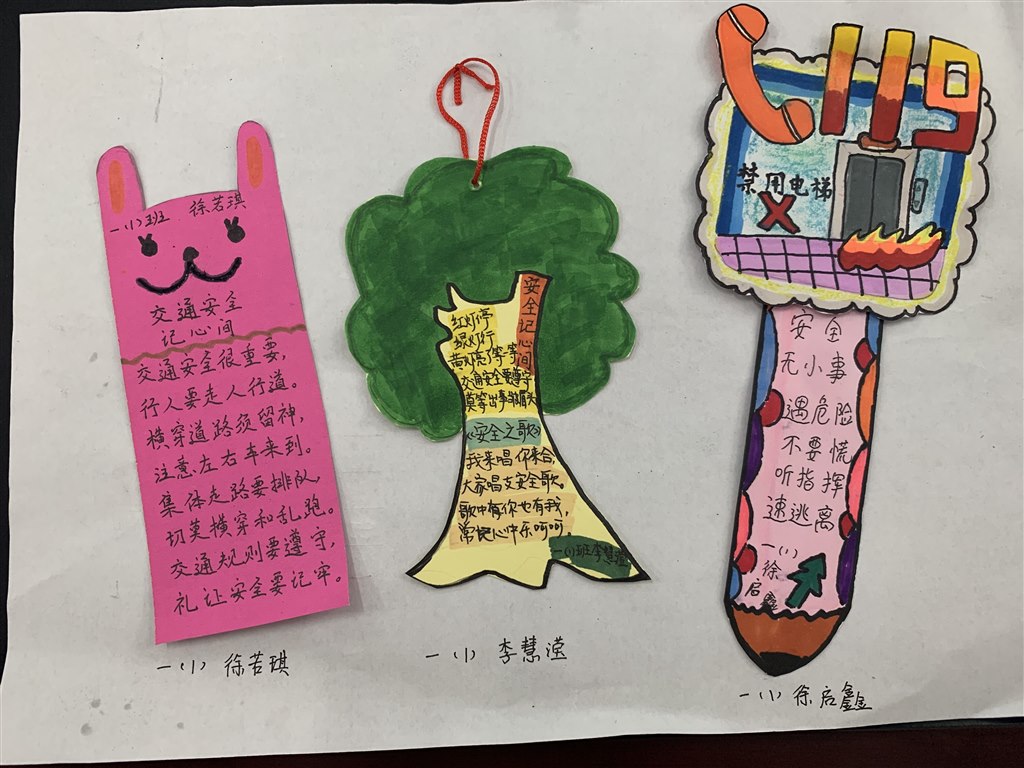 一(1)班 徐若琪
交通安全
记心间
交通安全很重要,
行人要走人行道。
横穿道路须留神,
注意左右车来到。
集体走路要排队,
切莫横穿和乱跑。
交通规则要遵守,
礼让安全要记牢。
一(1) 徐若琪
安全记心间
红灯停
绿灯行
黄灯亮了等一等
交通安全要遵守
莫等出事
《安全之歌》
我来唱 你来合,
大家唱支安全歌。
歌中有你也有我,
常记心中乐呵呵
一(1)班李慧滢
一(1) 李慧滢
119
禁用电梯
安全
无小事
遇危险
不要慌
听指挥
速逃离
一(1)
徐
启鑫
一(1) 徐启鑫